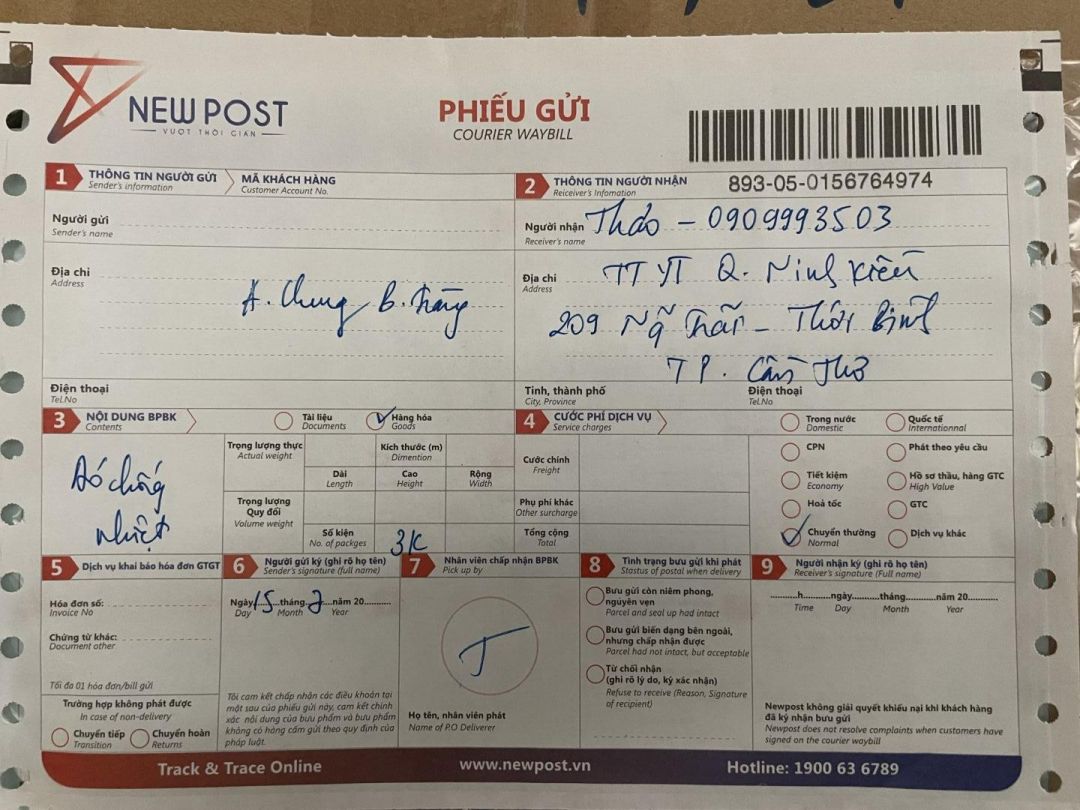 NEW POST
VƯỢT THỜI GIAN
PHIẾU GỬI
COURIER WAYBILL
893-05-0156764974
1 THÔNG TIN NGƯỜI GỬI
Sender's information
MÃ KHÁCH HÀNG
Customer Account No.
Người gửi
Sender's name
Địa chỉ
Address
A. Chung B.
Điện thoại
Tel.No
2 THÔNG TIN NGƯỜI NHẬN
Reiceiver's Infomation
Người nhận
Receiver's name
Thảo - 0909993503
Địa chỉ
Address
TTYT Q. Ninh Kiều
209 - Thới Bình
TP. Cần Thơ
Tỉnh, thành phố
City, Province
Điện thoại
Tel.No
3 NỘI DUNG BPBK
Contents
Tài liệu
Documents
Hàng hóa
Goods
chống
nhiệt
Trọng lượng thực
Actual weight
Kích thước (m)
Dimention
Dài
Length
Cao
Height
Rộng
Width
Trọng lượng
Quy đổi
Volume weight
Số kiện
No. of packges
3K
4 CƯỚC PHÍ DỊCH VỤ
Service charges
Cước chính
Freight
Phụ phí khác
Other surcharge
Tổng cộng
Total
Trong nước
Domestic
Quốc tế
Internationnal
CPN
Phát theo yêu cầu
Tiết kiệm
Economy
Hồ sơ thầu, hàng GTC
High Value
Hoả tốc
GTC
Chuyển thường
Normal
Dịch vụ khác
5 Dịch vụ khai báo hóa đơn GTGT
Hóa đơn số:
Invoice No
Chứng từ khác:
Document other
Tối đa 01 hóa đơn/bill gửi
Trường hợp không phát được
In case of non-delivery
Chuyển tiếp
Transition
Chuyển hoàn
Returns
6 Người gửi ký (ghi rõ họ tên)
Sender's signature (full name)
Ngày 15 tháng 2 năm 20
Day Month Year
Tôi cam kết chấp nhận các điều khoản tại
mặt sau của phiếu gửi này, cam kết chính
xác nội dung của bưu phẩm và bưu phẩm
không có hàng cấm gửi theo quy định của
pháp luật.
7 Nhân viên chấp nhận BPBK
Pick up by
Họ tên, nhân viên phát
Name of P.O Deliverer
8 Tình trạng bưu gửi khi phát
Stastus of postal when delivery
Bưu gửi còn niêm phong,
nguyên vẹn
Parcel and seal up had intact
Bưu gửi biến dạng bên ngoài,
nhưng chấp nhận được
Parcel had not intact, but acceptable
Từ chối nhận
(ghi rõ lý do, ký xác nhận)
Refuse to receive (Reason, Signature
of recipient)
9 Người nhận ký (ghi rõ họ tên)
Receiver's signature (Full name)
h ngày tháng năm 20
Time Day Month Year
Newpost không giải quyết khiếu nại khi khách hàng
đã ký nhận bưu gửi
Newpost does not resolve complaints when customers have
signed on the courier waybill
Track & Trace Online
www.newpost.vn
Hotline: 1900 63 6789